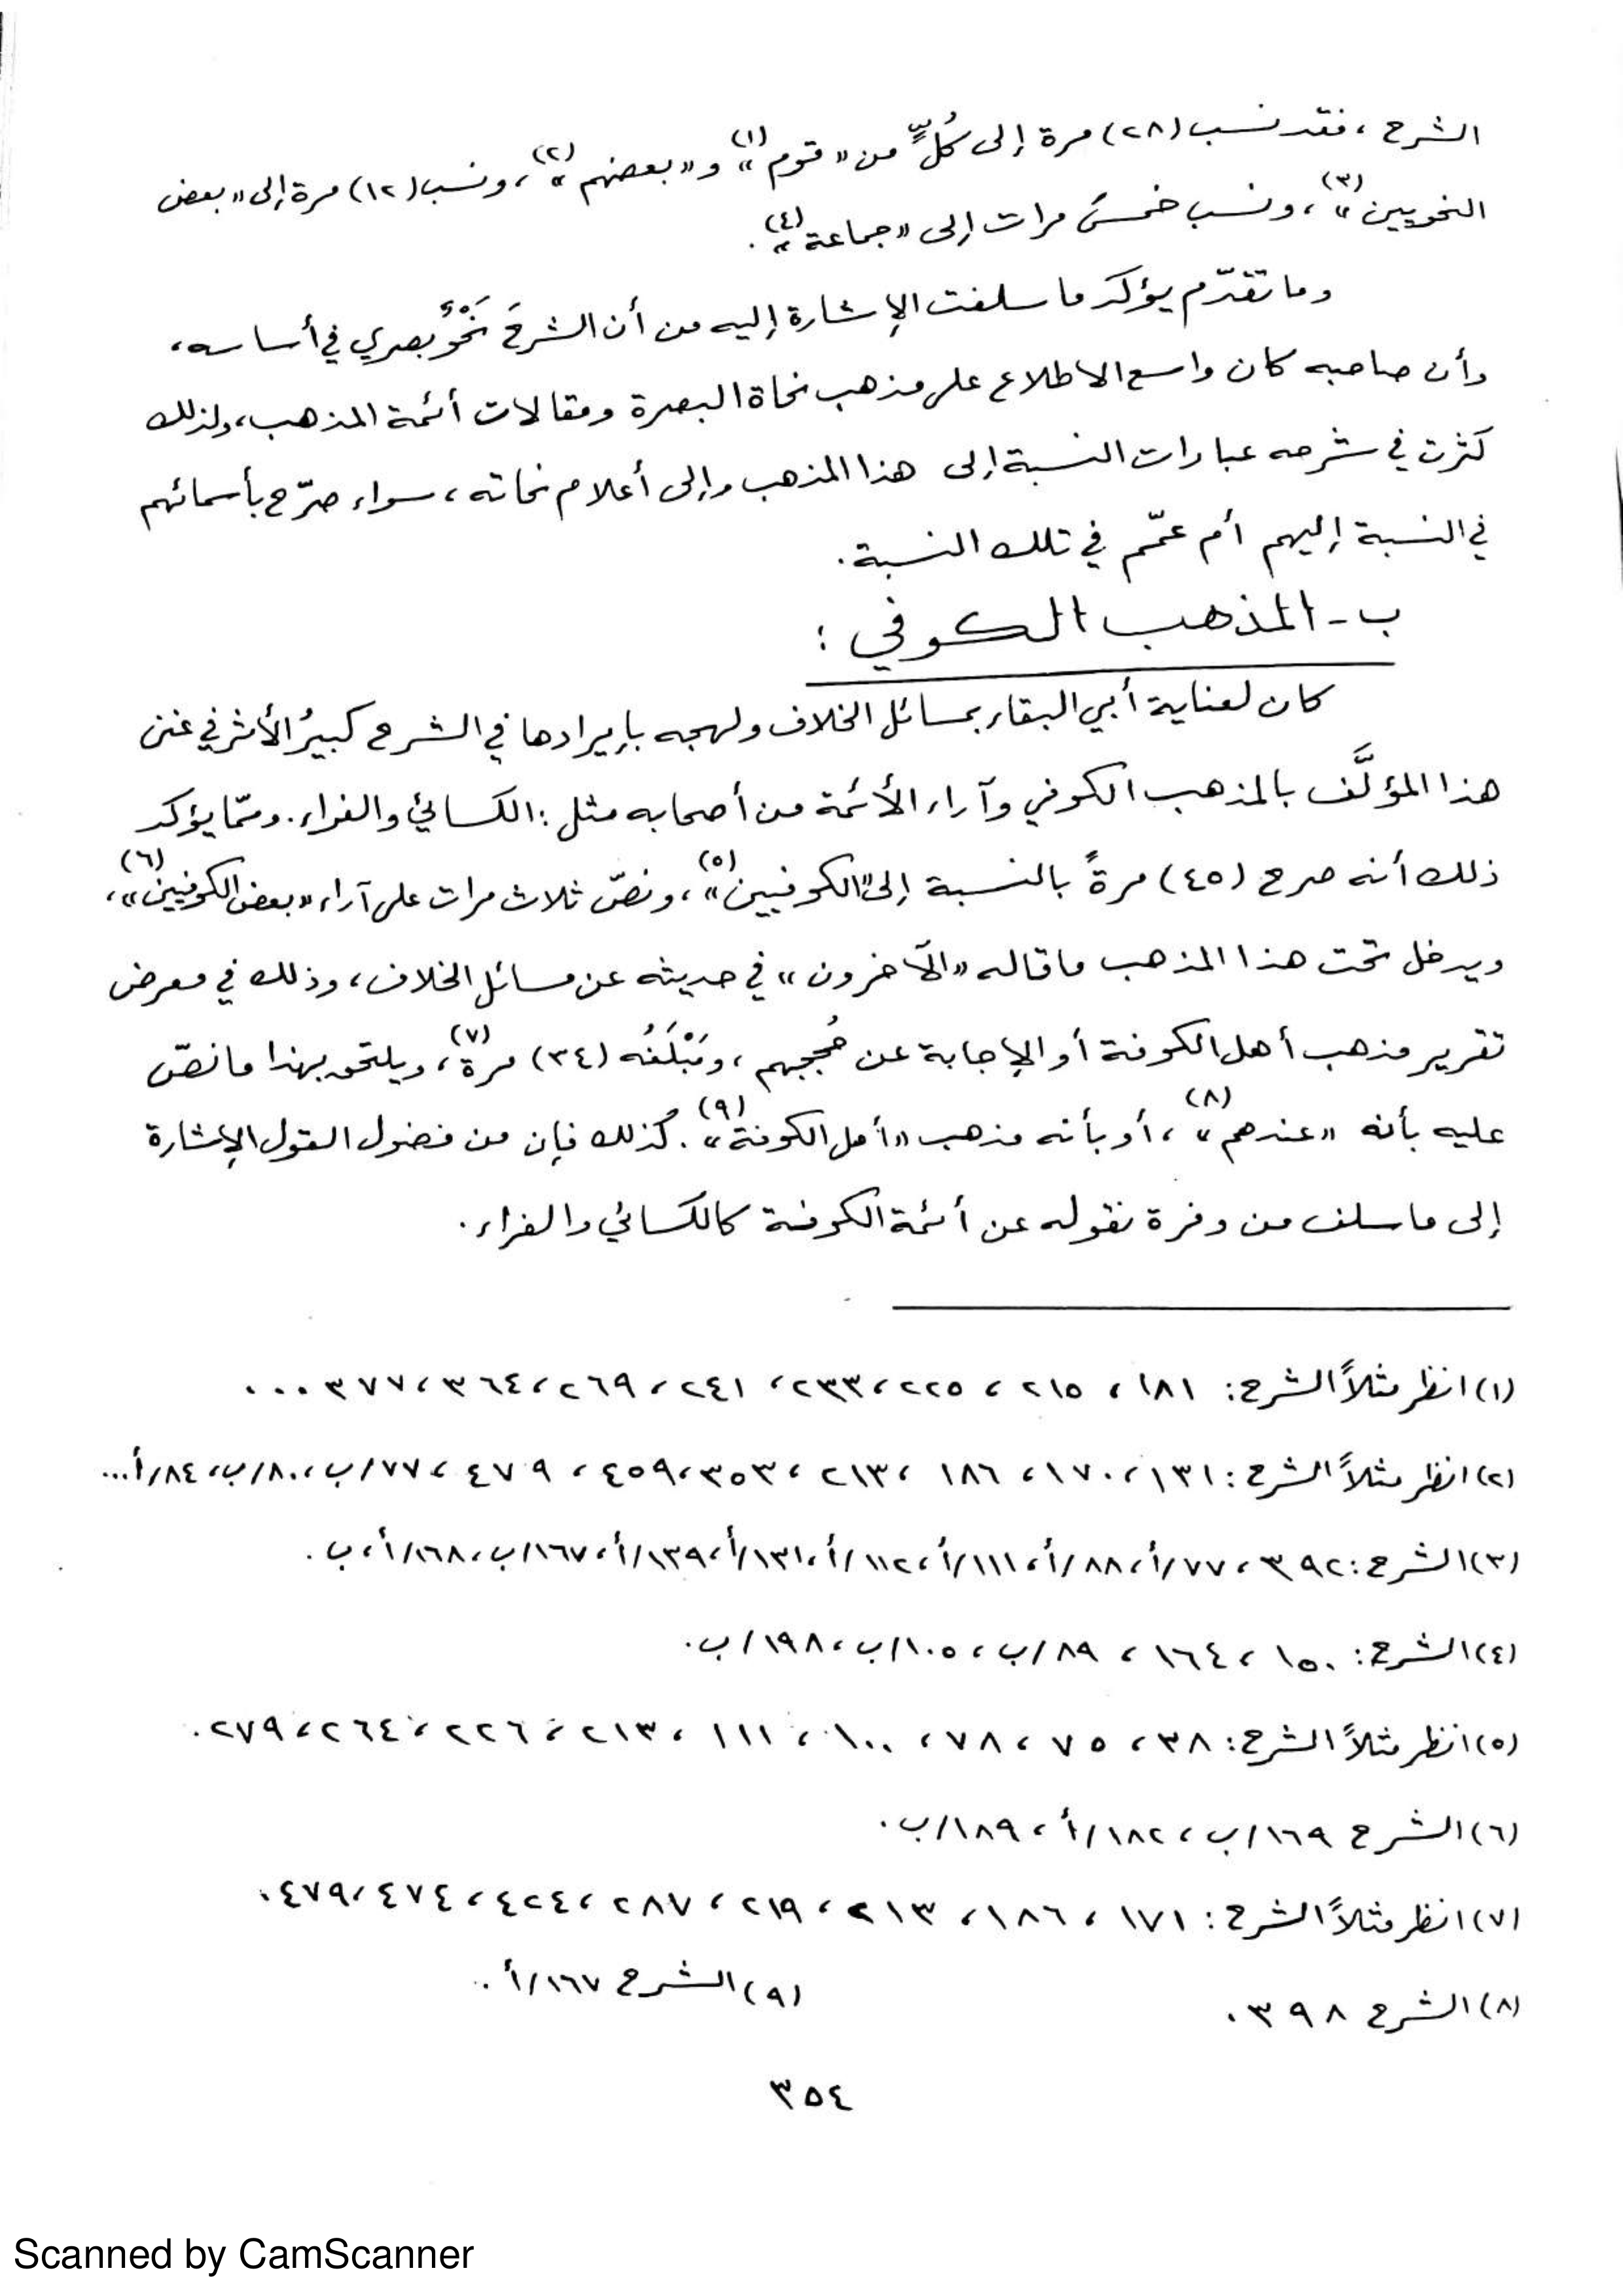 الشرح ، فقد نسب (٢٨) مرة إلى كُلٍّ من «قوم»(١) و «بعضهم»(٢)، ونسب (١٢) مرة إلى «بعض
النحويين»(٣)، ونسب خمسَ مرات إلى «جماعة»(٤).
وما تقدّم يؤكد ما سلفت الإشارة إليه من أن الشرحَ نَحْوٌ بصري في أساسه،
وأن صاحبه كان واسع الاطلاع على مذهب نحاة البصرة ومقالات أئمة المذهب، ولذلك
كثرت في شرحه عبارات النسبة إلى هذا المذهب وإلى أعلام نحاته ، سواء صرّح بأسمائهم
في النسبة إليهم أم عمّم في تلك النسبة.
ب - المذهب الكوفي :
كان لعناية أبي البقاء بمسائل الخلاف ولهجه بإيرادها في الشرح كبيرُ الأثر في غنى
هذا المؤلَّف بالمذهب الكوفي وآراء الأئمة من أصحابه مثل : الكسائي والفراء. وممّا يؤكد
ذلك أنه صرح (٤٥) مرةً بالنسبة إلى «الكوفيين»(٥)، ونصّ ثلاث مرات على آراء «بعض الكوفيين»(٦)،
ويدخل تحت هذا المذهب ما قاله «الآخرون» في حديثه عن مسائل الخلاف، وذلك في معرض
تقرير مذهب أهل الكوفة أو الإجابة عن حُججهم ، ومَبْلَغُه (٣٤) مرة(٧)، ويلتحق بهذا ما نصّ
عليه بأنه «عندهم»(٨)، أو بأنه مذهب «أهل الكوفة»(٩). كذلك فإن من فضول القول الإشارة
إلى ما سلف من وفرة نقوله عن أئمة الكوفة كالكسائي والفراء.
(١) انظر مثلاً الشرح: ١٨١ ، ٢١٥ ، ٢٢٥ ،٢٣٣، ٢٤١ ،٢٦٩ ،٣٦٤ ،٣٧٧ ...
(٢) انظر مثلاً الشرح: ١٣١ ،١٧٠ ، ١٨٦ ،٢١٣ ،٣٥٣ ،٤٥٩ ، ٤٧٩ ،٧٧/ب ،٨٠/ب، ٨٤/أ...
(٣) الشرح: ٣٩٢ ، ٧٧/أ، ٨٨/أ، ١١١/أ، ١١٢/أ، ١٣١/أ، ١٣٩/أ، ١٦٧/ب، ١٦٨/أ، ب .
(٤) الشرح: ١٥٠ ، ١٦٤ ، ٨٩/ب، ١٠٥/ب، ١٩٨/ب.
(٥) انظر مثلاً الشرح: ٣٨ ، ٧٥ ، ٧٨ ، ١٠٠ ، ١١١ ،٢١٣ ، ٢٢٦ ، ٢٦٤ ، ٢٧٩.
(٦) الشرح ١٦٩/ب، ١٨٢/أ ، ١٨٩/ب .
(٧) انظر مثلاً الشرح: ١٧١ ، ١٨٦ ، ٢١٣ ، ٢١٩ ، ٢٨٧ ، ٤٢٤ ، ٤٧٤ ،٤٧٩ .
(٨) الشرح ٣٩٨ .
(٩) الشرح ١٦٧/أ .
٣٥٤
Scanned by CamScanner